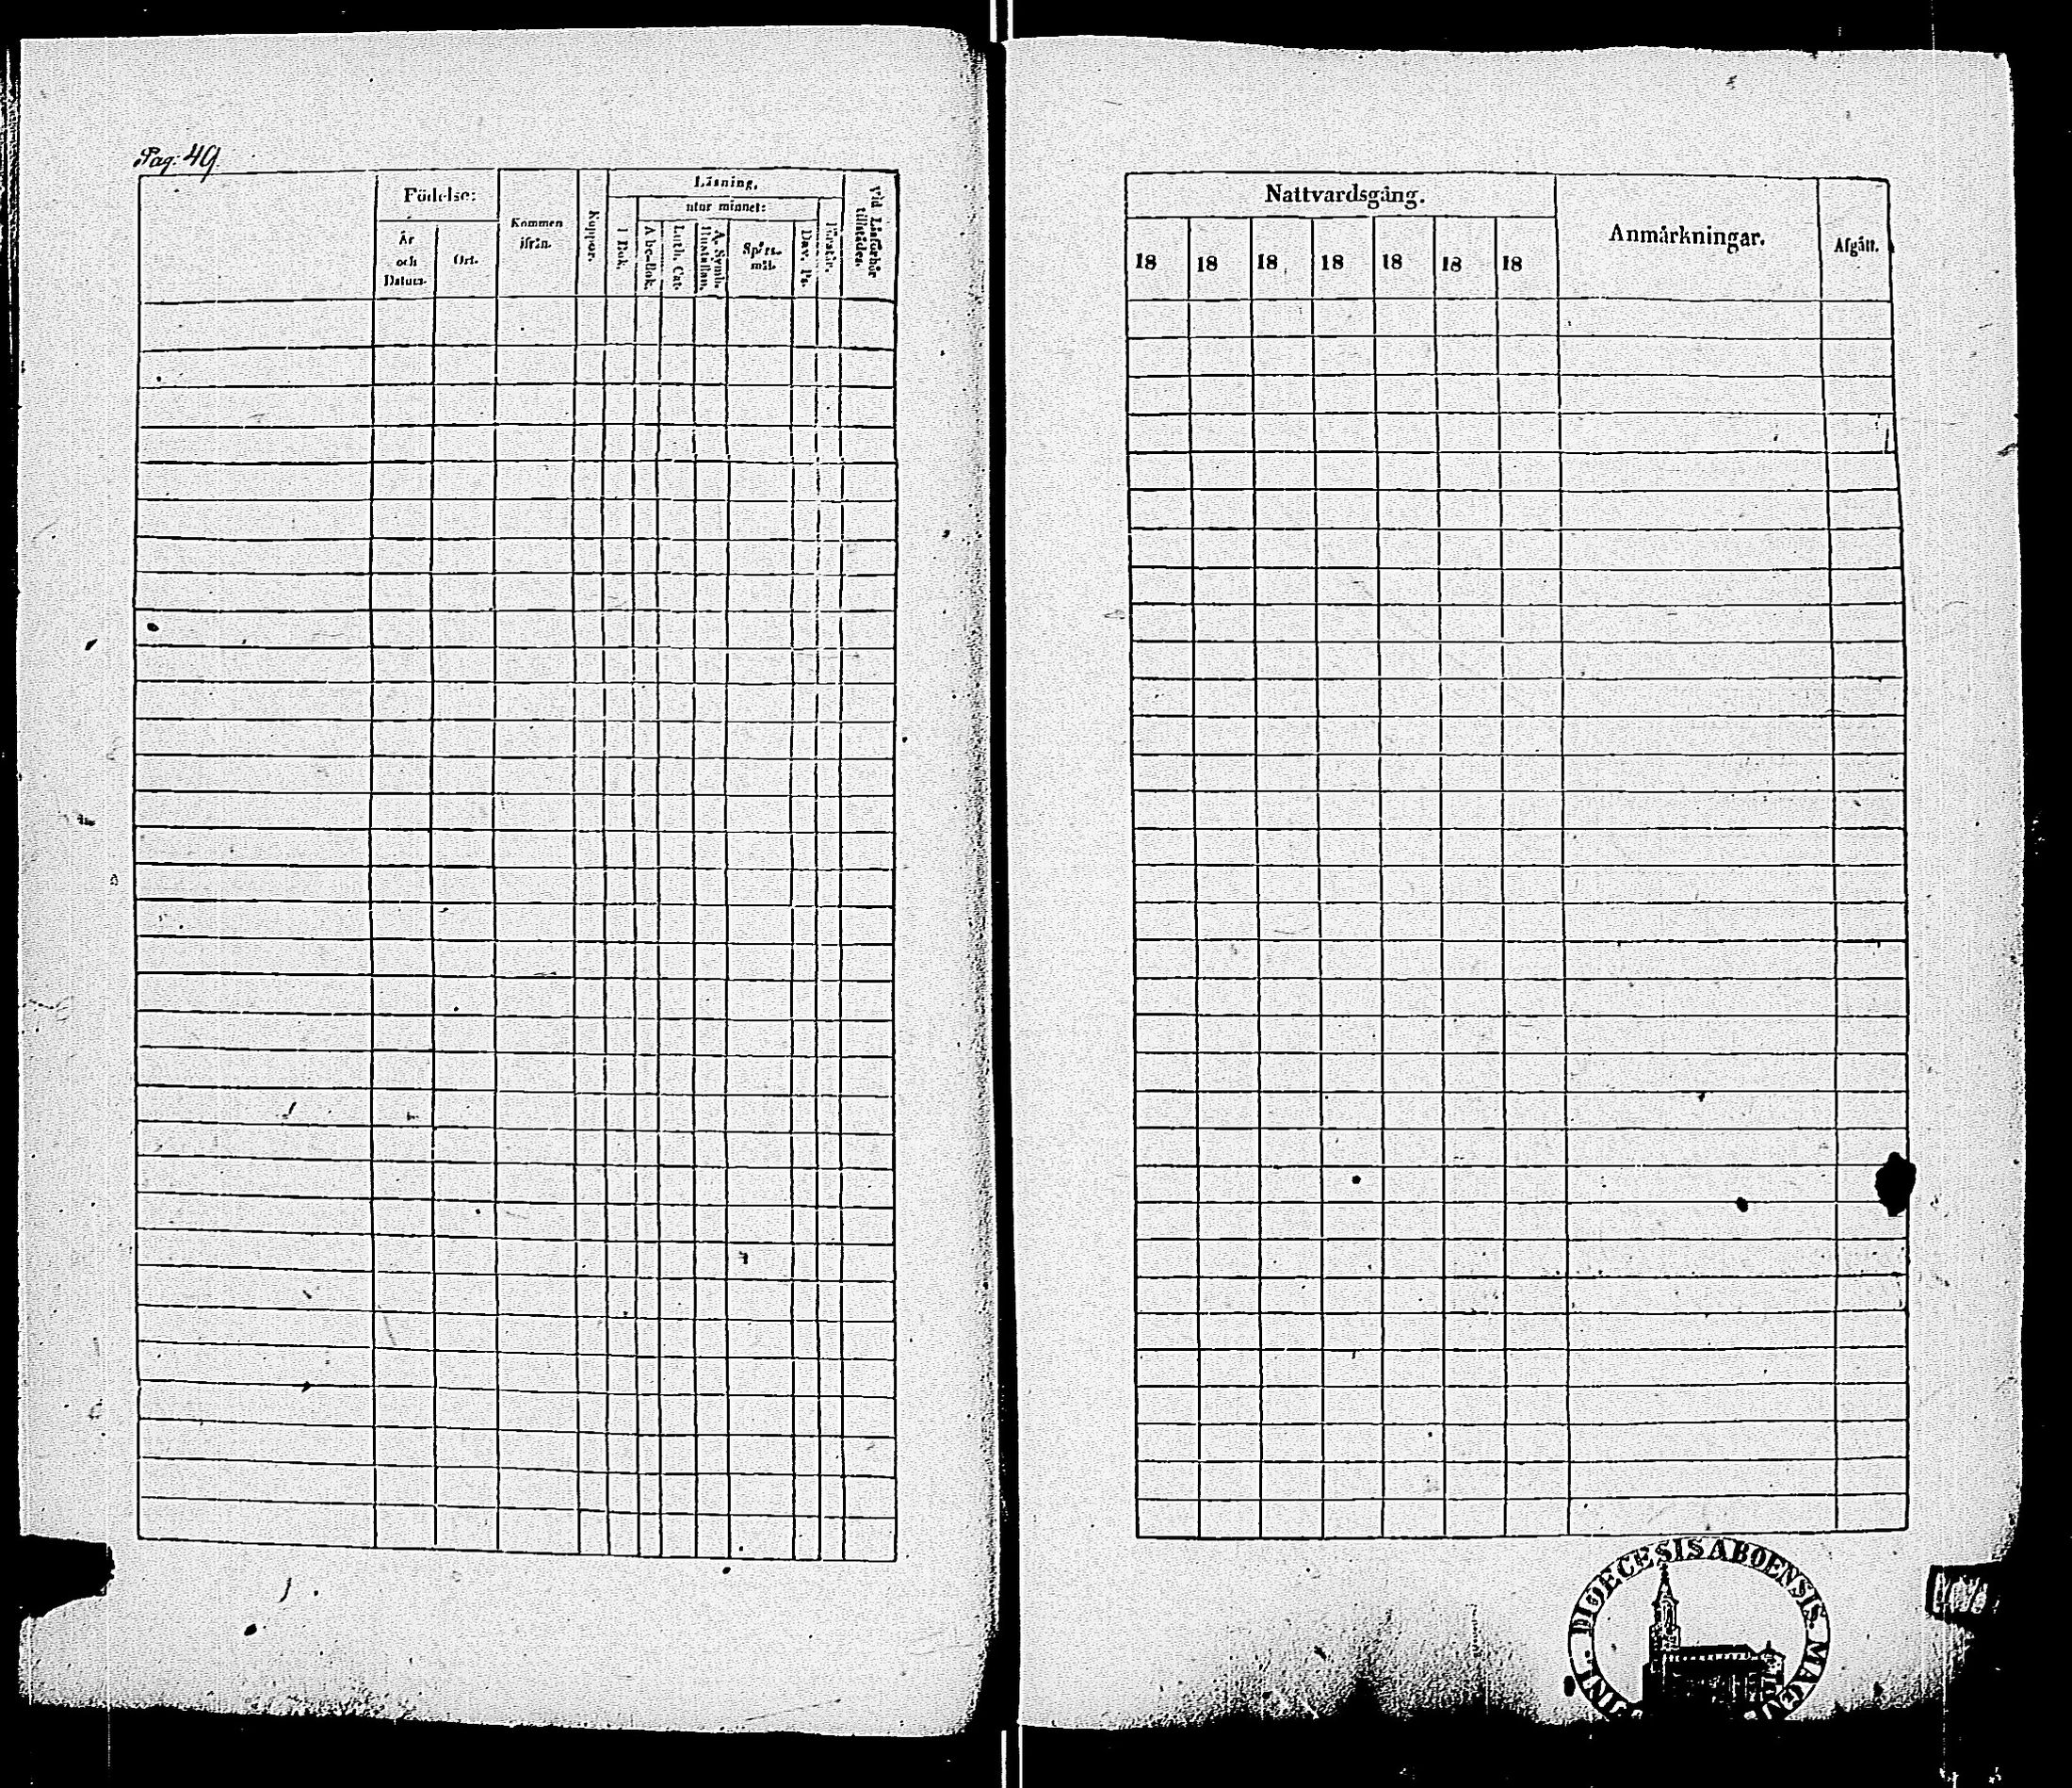 Pag: 49.
Födelse:
År
och
Datum.
Ort.
Kommen
ifrån.
Koppor.
Läsning,
utur minnet:
I Bok.
Abc-Bok.
Luth. Cat.
A. Symb.
Hustaflan.
Spörs-
mål.
Dav. Ps.
Förstår.
Vid Läsförhör
tillstädes.
Nattvardsgång.
18 18 18 18 18 18 18
Anmärkningar.
Afgått.
DIOECESIS ABOENSIS.